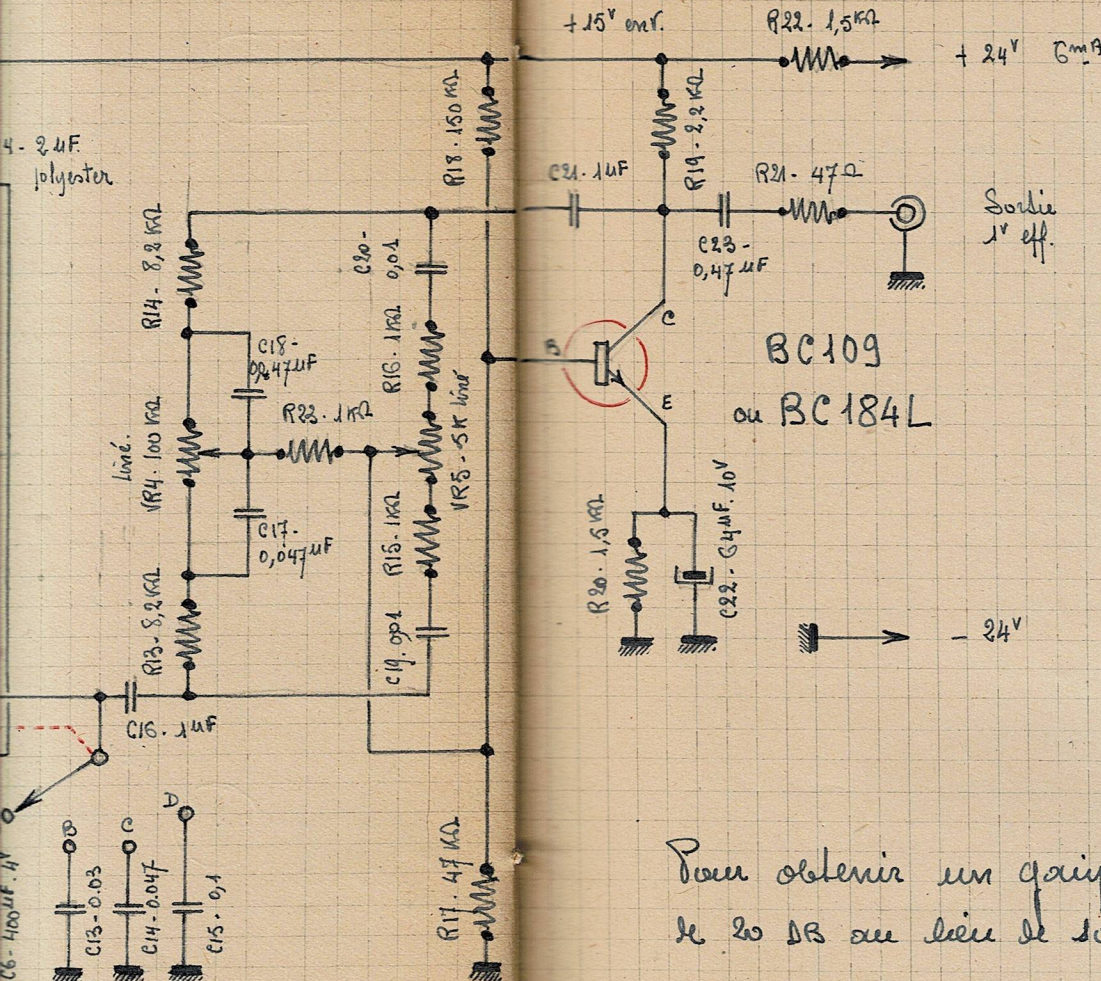 +15V env.
R22 - 1,5KΩ
+ 24V
6mA
4 - 2µF.
polyester
R18 - 150 KΩ
R19 - 2,2 KΩ
C21 - 1µF
R21 - 47Ω
Sortie
1V eff.
R14 - 8,2 KΩ
C20 -
0,01
C23 -
0,47 µF
C
C18 -
0,047µF
R16 - 1KΩ
B
BC109
ou BC184L
E
R23 - 1KΩ
Liné.
VR4 - 100 KΩ
VR5 - 5K Liné
C17 -
0,047µF
R15 - 1KΩ
R20 - 1,5 KΩ
C22 - 64µF. 10V
R13 - 8,2KΩ
C19 - 0,01
- 24V
C16 - 1µF
B
C
D
C6 - 400µF. 4V
C13 - 0.03
C14 - 0.047
C15 - 0,1
R17 - 47 KΩ
Pour obtenir un gain
de 20 DB au lieu de